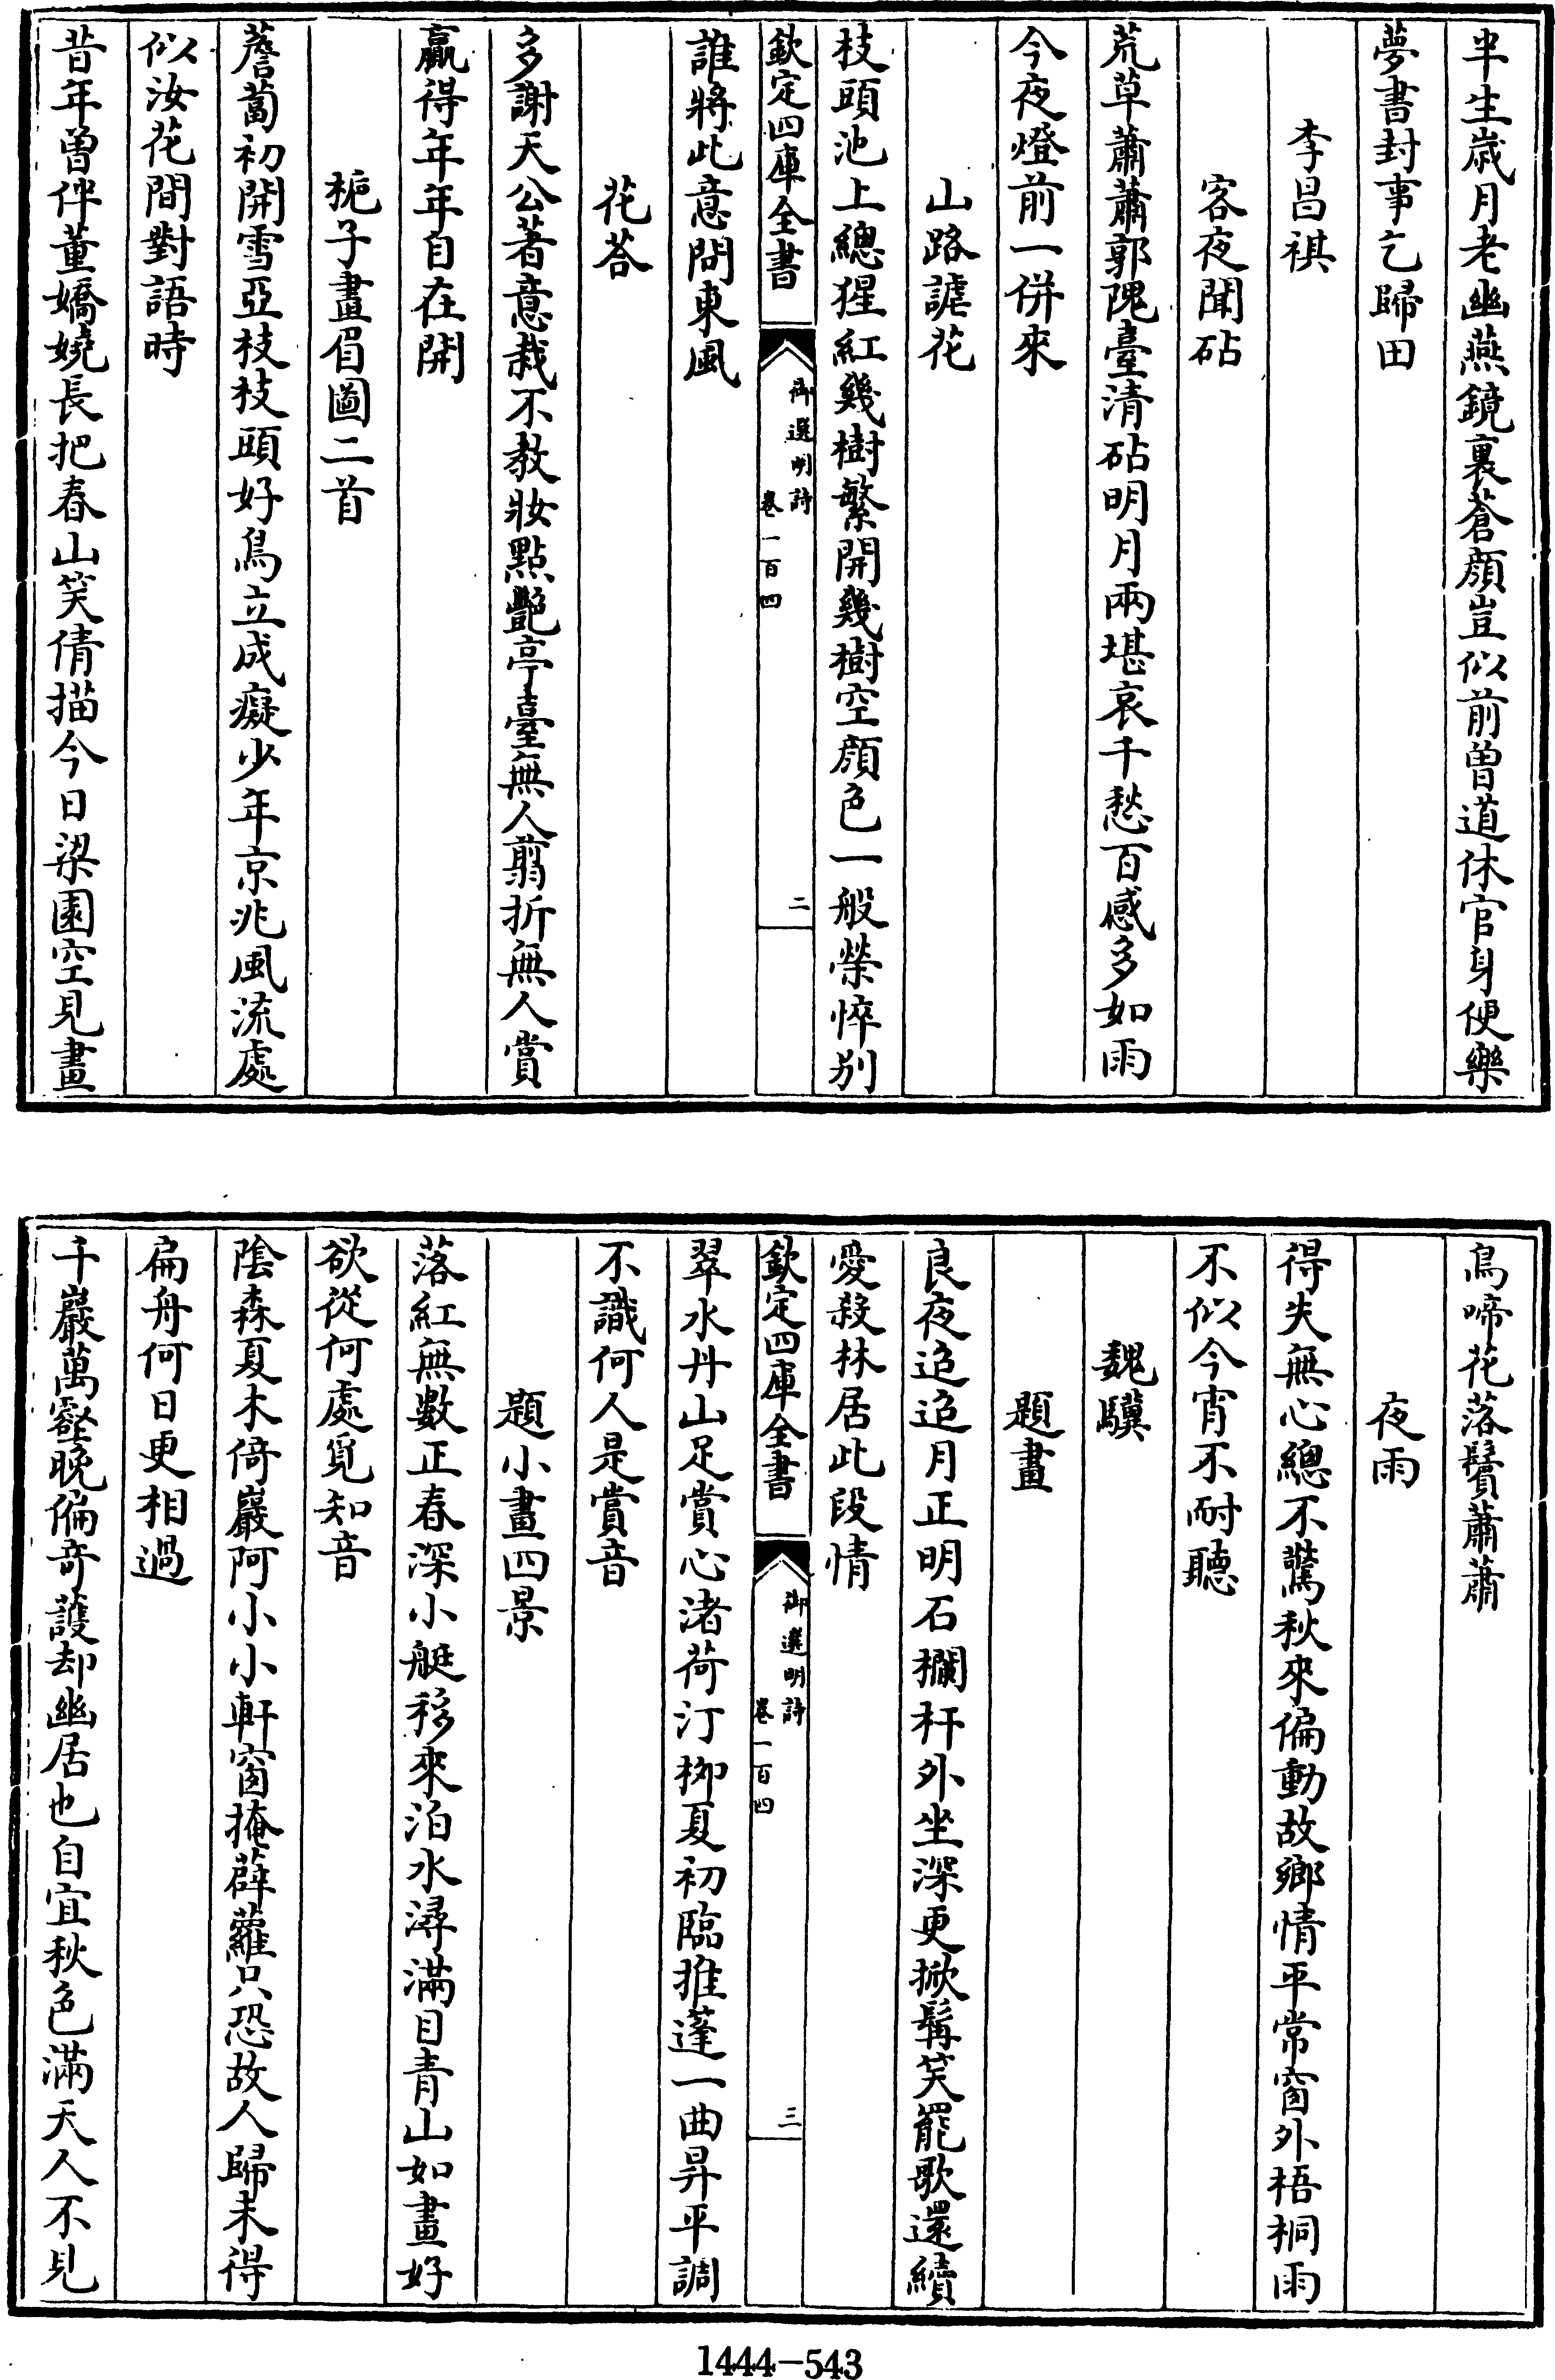 半生歳月老幽燕鏡裏蒼顔豈似前曾道休官身便樂
夢書封事乞歸田
李昌祺
客夜聞砧
荒草蕭蕭郭隗臺清砧明月兩堪哀千愁百感多如雨
今夜燈前一併來
山路謔花
枝頭池上總猩紅幾樹繁開幾樹空顔色一般榮悴别
欽定四庫全書
御選明詩
卷一百四
二
誰將此意問東風
花荅
多謝天公著意栽不教妝點艷亭臺無人翦折無人賞
贏得年年自在開
梔子畫眉圖二首
薝蔔初開雪亞枝枝頭好鳥立成癡少年京兆風流處
似汝花間對語時
昔年曾伴董嬌嬈長把春山笑倩描今日梁園空見畫
鳥啼花落鬢蕭蕭
夜雨
得失無心總不驚秋來偏動故鄉情平常窗外梧桐雨
不似今宵不耐聽
魏驥
題畫
良夜迢迢月正明石欄杆外坐深更掀髯笑罷歌還續
愛殺林居此段情
欽定四庫全書
御選明詩
卷一百四
三
翠水丹山足賞心渚荷汀柳夏初臨推蓬一曲昇平調
不識何人是賞音
題小畫四景
落紅無數正春深小艇移來泊水潯滿目青山如畫好
欲從何處覓知音
陰森夏木倚巖阿小小軒窗掩薜蘿只恐故人歸未得
扁舟何日更相過
千巖萬壑晚偏奇護却幽居也自宜秋色滿天人不見
1444-543